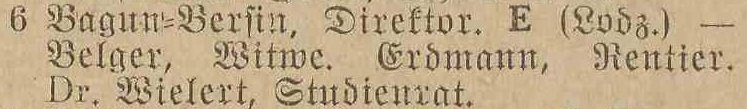 6 Bagun-Bersin, Direktor. E (Lodz.) —
Belger, Witwe. Erdmann, Rentier.
Dr. Wielert, Studienrat.